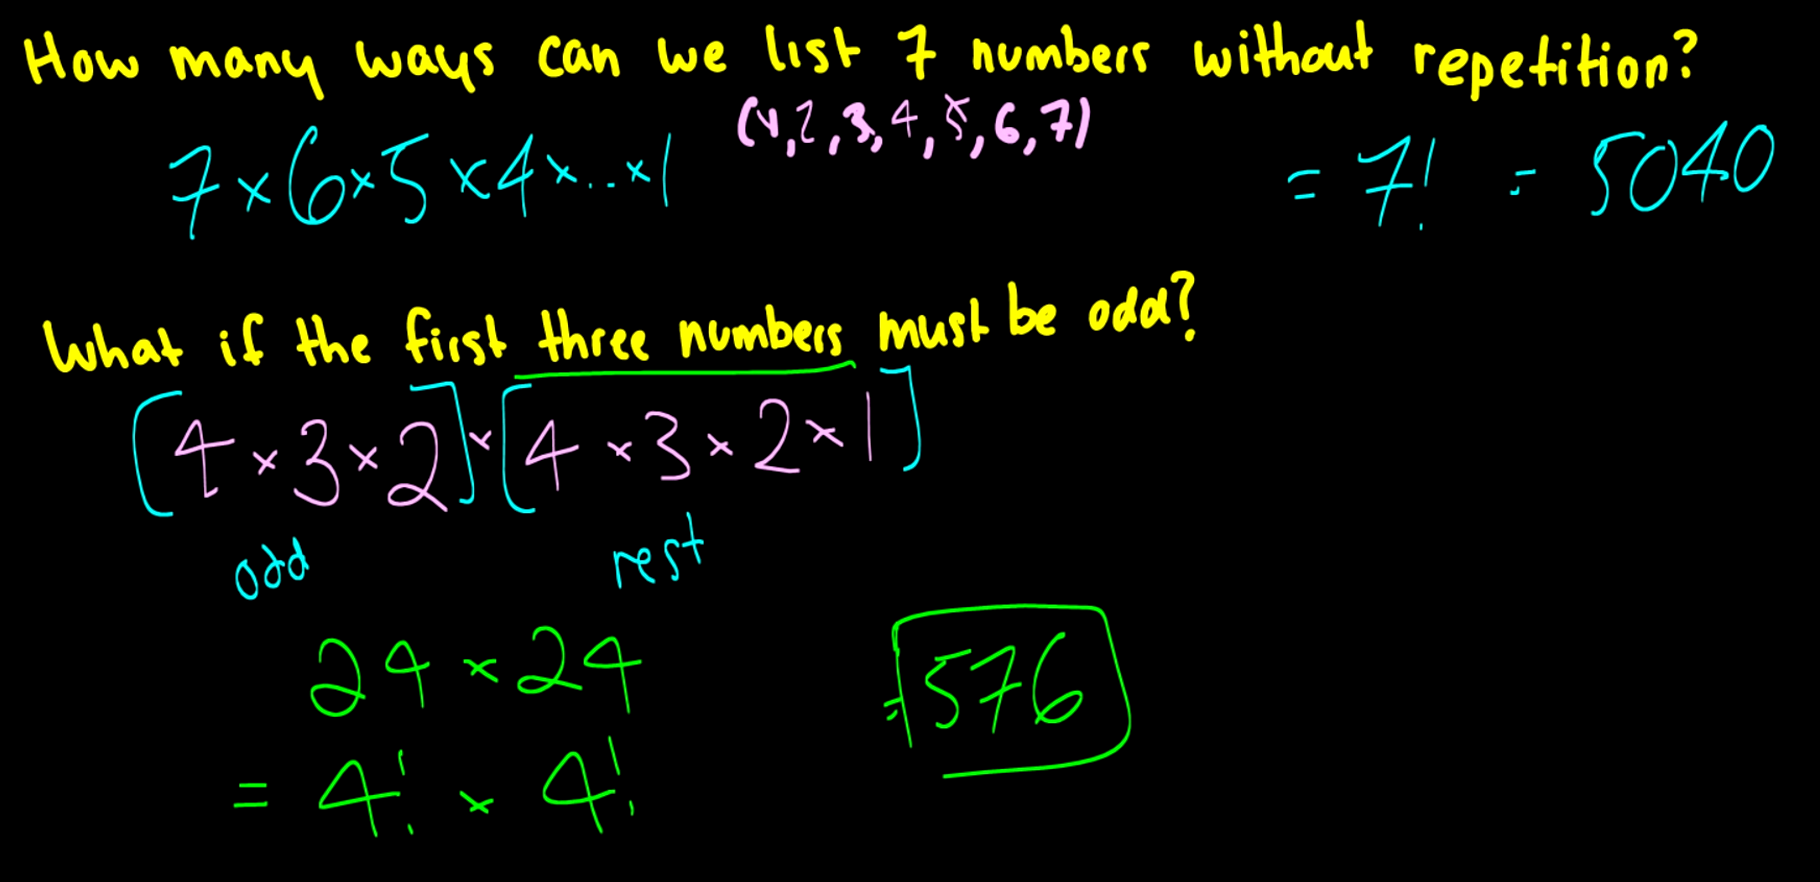 How many ways can we list 7 numbers without repetition?
(1,2,3,4,5,6,7)
7×6×5×4×...×1 = 7! = 5040
What if the first three numbers must be odd?
[4×3×2]×[4×3×2×1]
odd rest
24×24 =576
= 4! × 4!